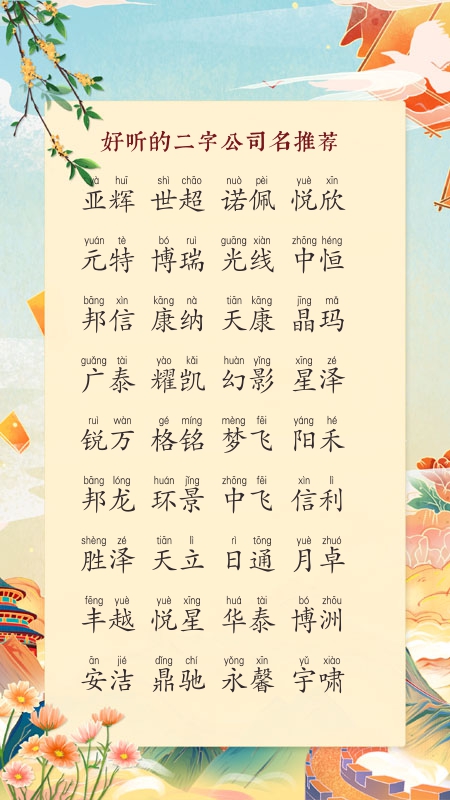 好听的二字公司名推荐
yà huī shì chāo nuò pèi yuè xīn
亚辉 世超 诺佩 悦欣
yuán tè bó ruì guāng xiàn zhōng héng
元特 博瑞 光线 中恒
bāng xìn kāng nà tiān kāng jīng mǎ
邦信 康纳 天康 晶玛
guǎng tài yào kǎi huàn yǐng xīng zé
广泰 耀凯 幻影 星泽
ruì wàn gé míng mèng fēi yáng hé
锐万 格铭 梦飞 阳禾
bāng lóng huán jǐng zhōng fēi xìn lì
邦龙 环景 中飞 信利
shèng zé tiān lì rì tōng yuè zhuó
胜泽 天立 日通 月卓
fēng yuè yuè xīng huá tài bó zhōu
丰越 悦星 华泰 博洲
ān jié dǐng chí yǒng xīn yǔ xiào
安洁 鼎驰 永馨 宇啸